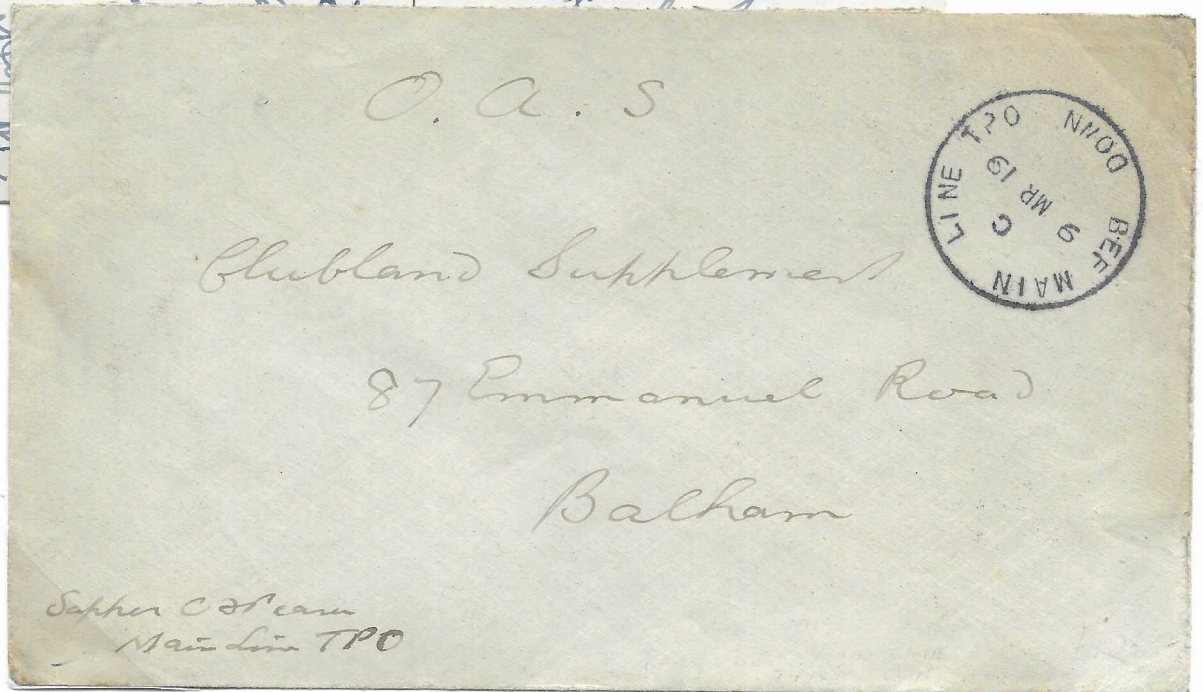 O. A. S
BEF MAIN LINE TPO DOWN
C
9 MR 19
Clubland Supplement
87 Emmanuel Road
Balham
Sapper C
Main Line TPO